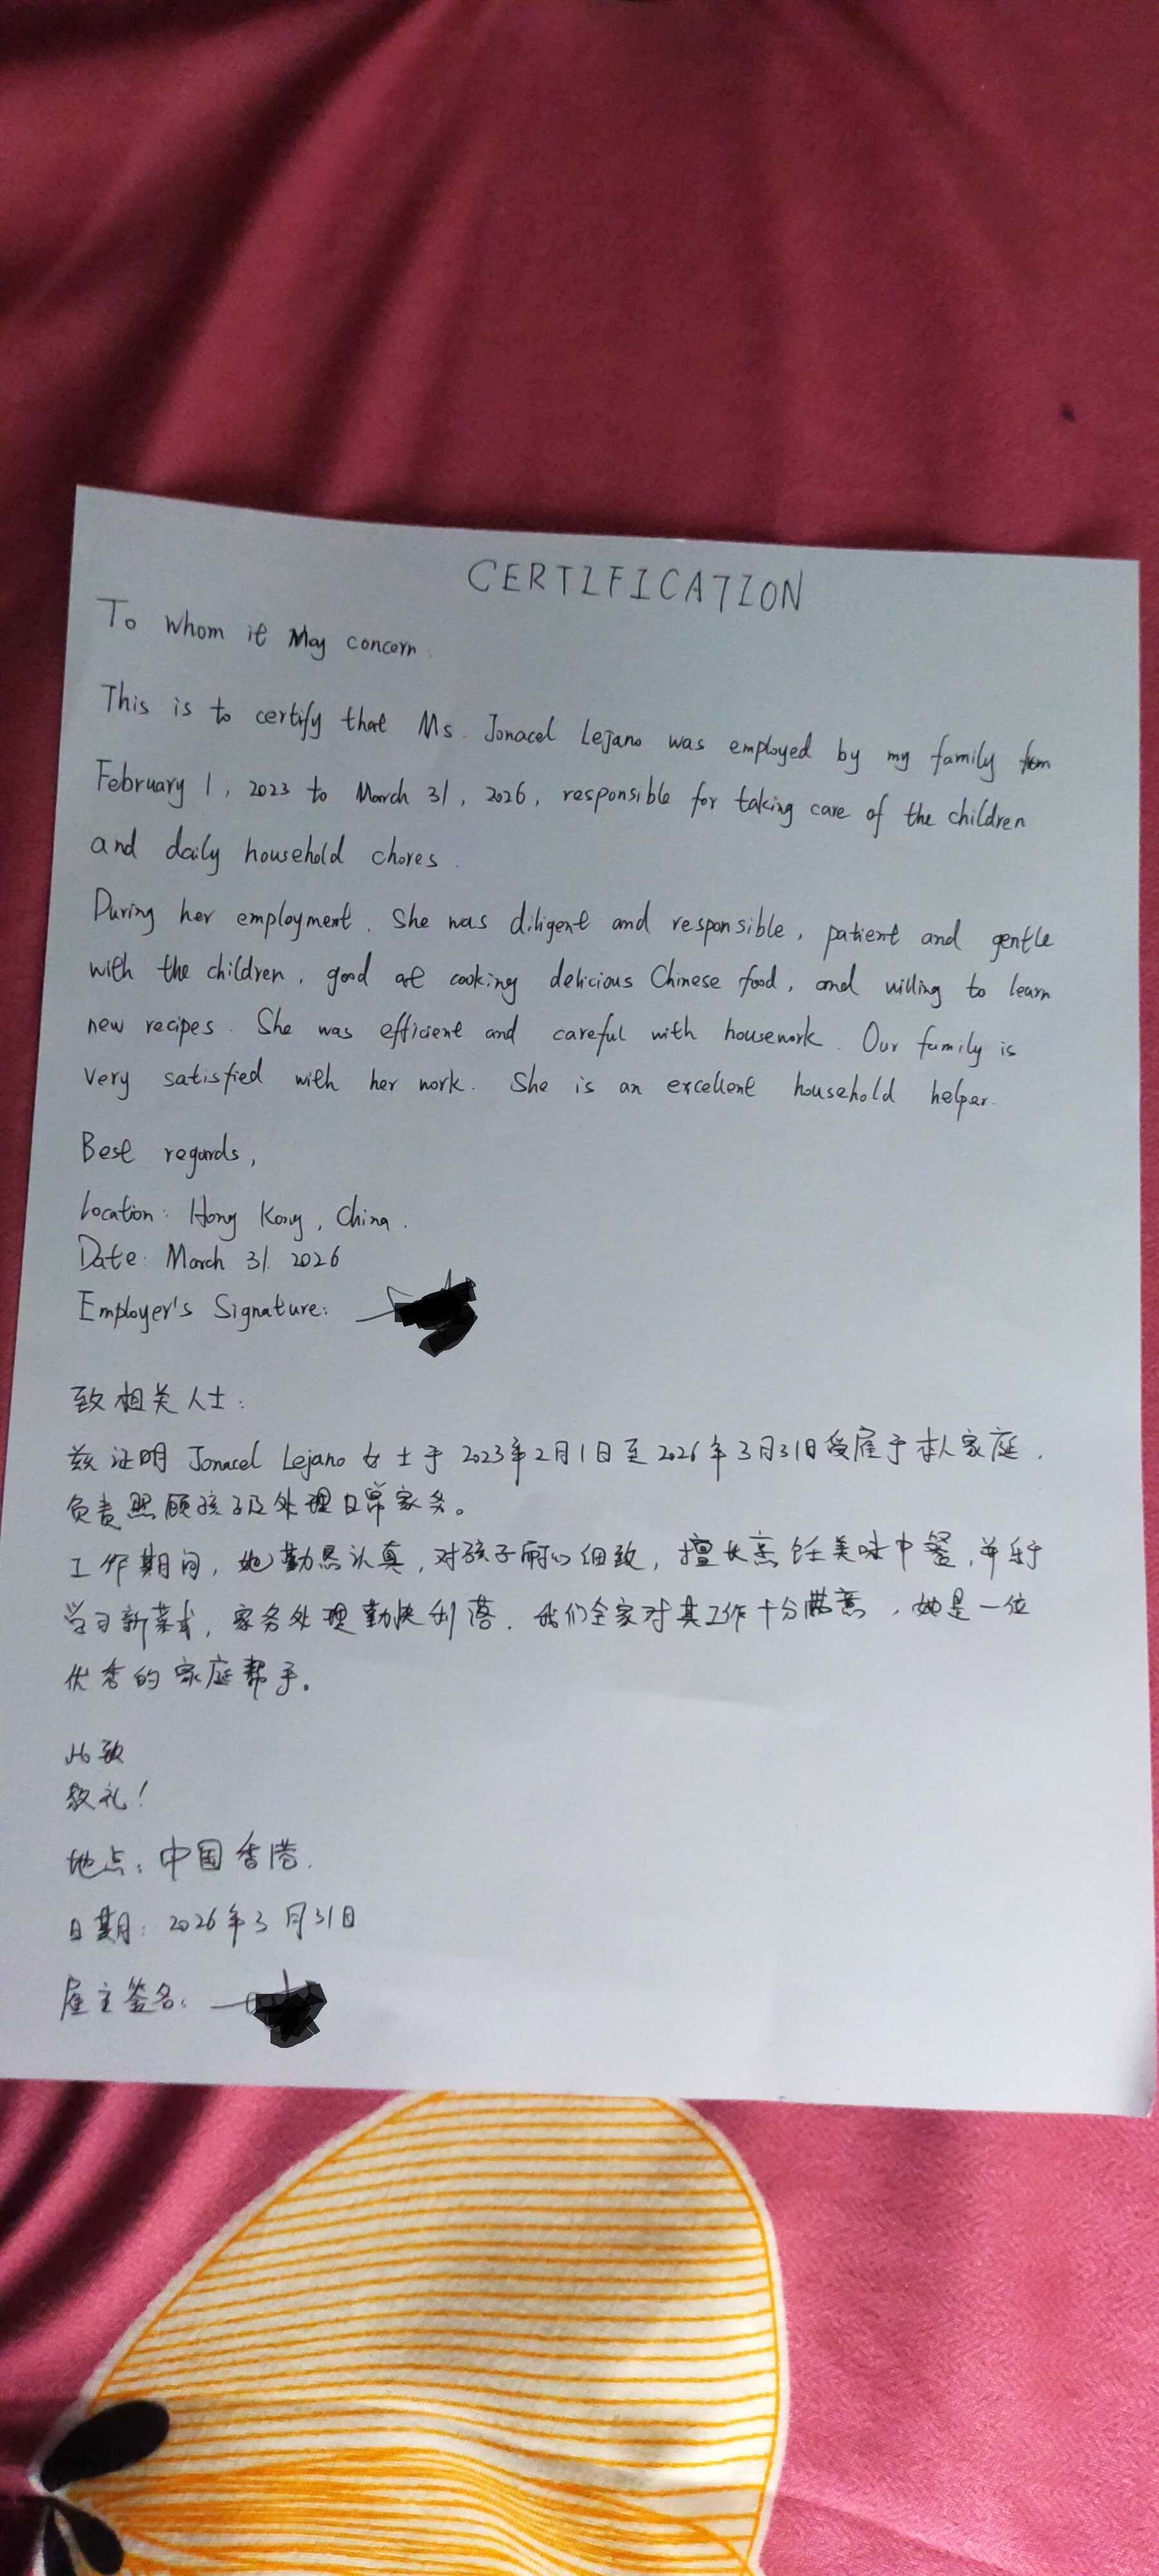 CERTIFICATION
To whom it May concern:
This is to certify that Ms. Jonacel Lejano was employed by my family from
February 1, 2023 to March 31, 2026, responsible for taking care of the children
and daily household chores.
During her employment, she was diligent and responsible, patient and gentle
with the children, good at cooking delicious Chinese food, and willing to learn
new recipes. She was efficient and careful with housework. Our family is
very satisfied with her work. She is an excellent household helper.
Best regards,
Location: Hong Kong, China.
Date: March 31. 2026
Employer's Signature:
致相关人士:
兹证明 Jonacel Lejano 女士于 2023年2月1日至2026年3月31日受雇于本人家庭,
负责照顾孩子及处理日常家务。
工作期间,她勤恳认真,对孩子耐心细致,擅长烹饪美味中餐,并乐于
学习新菜式,家务处理勤快利落.我们全家对其工作十分满意,她是一位
优秀的家庭帮手.
此致
敬礼!
地点:中国香港.
日期:2026年3月31日
雇主签名: